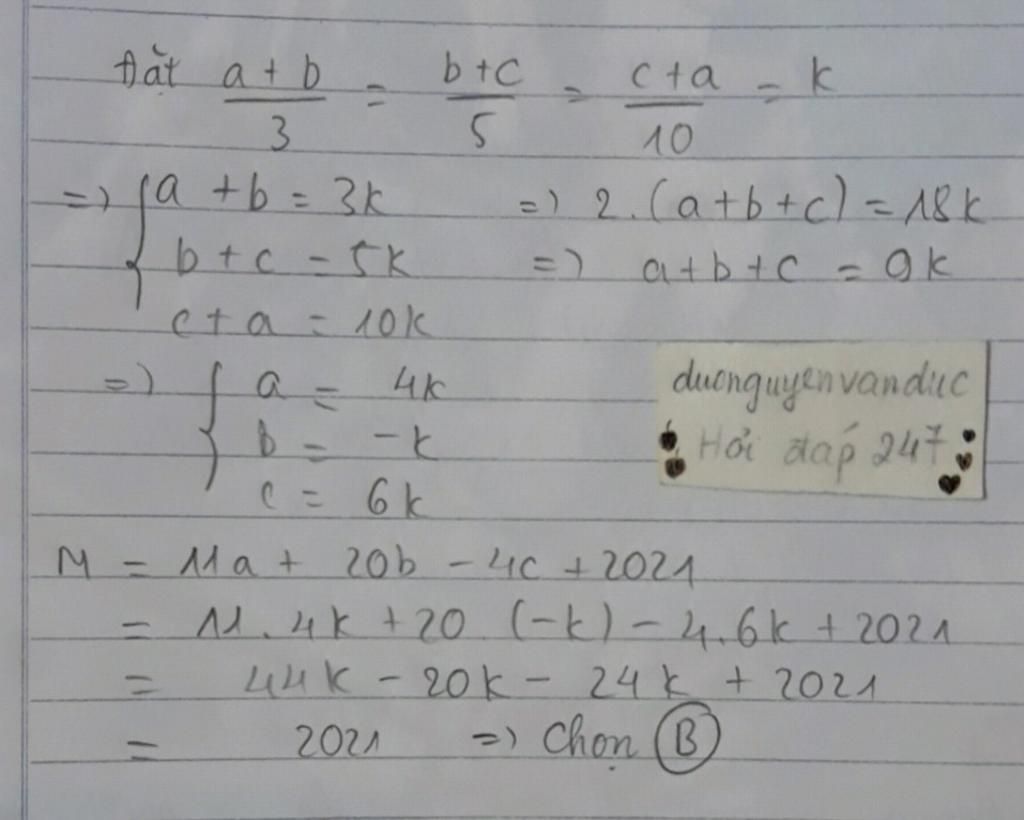 Đặt a + b / 3 = b + c / 5 = c + a / 10 = k
=> { a + b = 3k => 2.(a+b+c) = 18k
b + c = 5k => a+b+c = 9k
c + a = 10k
=> { a = 4k
b = -k
c = 6k
duonguyenvanduc
Hỏi đáp 247
M = 11a + 20b - 4c + 2021
= 11.4k + 20.(-k) - 4.6k + 2021
= 44k - 20k - 24k + 2021
= 2021 => Chọn B